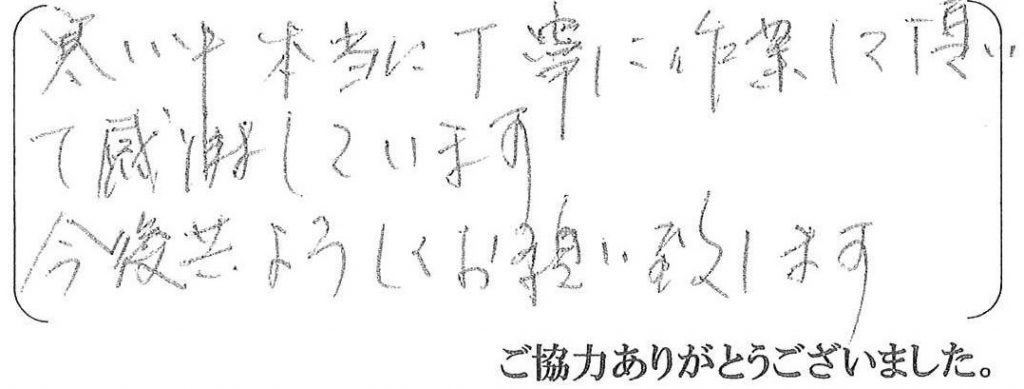 寒い中本当に丁寧に作業して頂い
て感謝しています
今後共よろしくお願い致します
ご協力ありがとうございました。